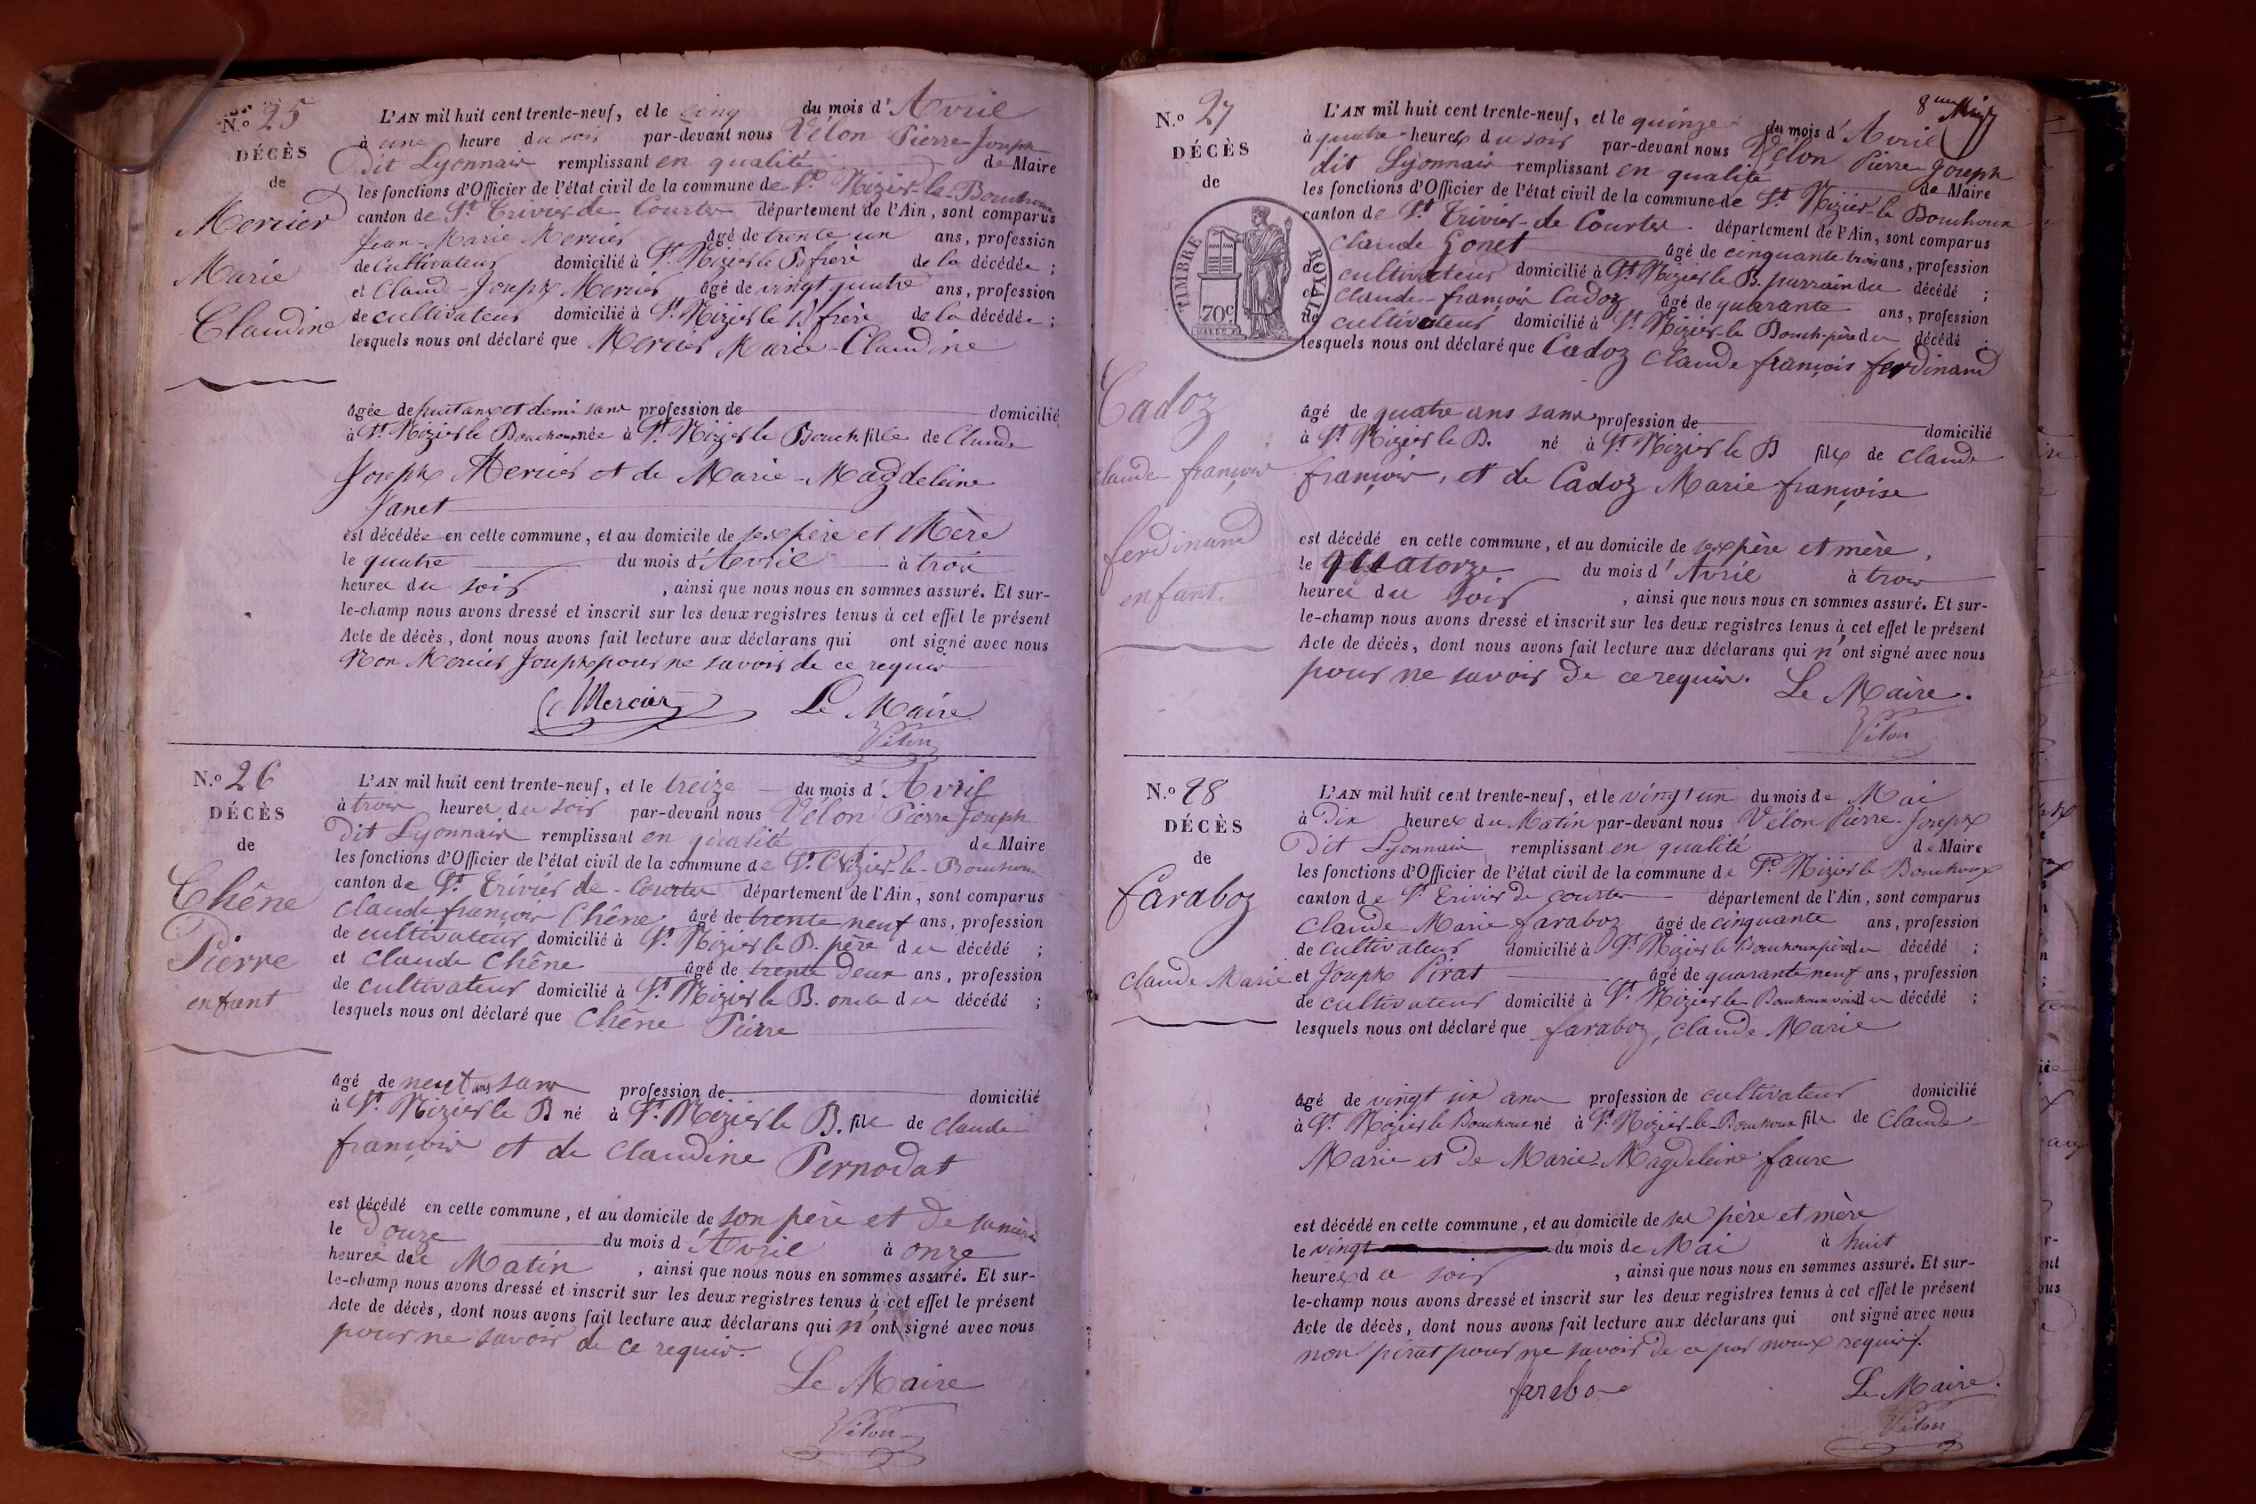 N.º 25
DÉCÈS
de
Mercier
Marie
Claudine
L'AN mil huit cent trente-neuf, et le cinq du mois d'Avril
à une heure du soir par-devant nous Vélon Pierre Joseph
dit Lyonnais remplissant en qualité de Maire
les fonctions d'Officier de l'état civil de la commune de St Nizier-le-Bouchoux
canton de St Trivier de Courtes département de l'Ain, sont comparus
Jean-Marie Mercier âgé de trente un ans, profession
de Cultivateur domicilié à St Nizier le B frère de la décédée ;
et Claude-Joseph Mercier âgé de vingt quatre ans, profession
de cultivateur domicilié à St Nizier le B frère de la décédée ;
lesquels nous ont déclaré que Mercier Marie-Claudine
âgée de huit ans et demi sans profession de domicilié
à St Nizier le Bouchoux née à St Nizier le Bouch fille de Claude
Joseph Mercier et de Marie-Magdeleine
Janet
est décédée en cette commune, et au domicile de ses père et Mère
le quatre du mois d'Avril à trois
heures du soir, ainsi que nous nous en sommes assuré. Et sur-
le-champ nous avons dressé et inscrit sur les deux registres tenus à cet effet le présent
Acte de décès, dont nous avons fait lecture aux déclarans qui ont signé avec nous
Non Mercier Joseph pour ne savoir de ce requis
Mercier Le Maire
Vélon
N.º 26
DÉCÈS
de
Chêne
Pierre
enfant
L'AN mil huit cent trente-neuf, et le treize du mois d'Avril
à trois heures du soir par-devant nous Vélon Pierre Joseph
dit Lyonnais remplissant en qualité de Maire
les fonctions d'Officier de l'état civil de la commune de St Nizier-le-Bouchoux
canton de St Trivier de-Courtes département de l'Ain, sont comparus
Claude françois Chêne âgé de trente neuf ans, profession
de cultivateur domicilié à St Nizier le B. père du décédé ;
et Claude Chêne âgé de trente deux ans, profession
de cultivateur domicilié à St Nizier le B. oncle du décédé ;
lesquels nous ont déclaré que Chêne Pierre
âgé de neuf ans sans profession de domicilié
à St Nizier le B né à St Nizier le B. fils de Claude
françois et de Claudine Pernodat
est décédé en cette commune, et au domicile de son père et de sa mère
le Douze du mois d'Avril à onze
heures du Matin, ainsi que nous nous en sommes assuré. Et sur-
le-champ nous avons dressé et inscrit sur les deux registres tenus à cet effet le présent
Acte de décès, dont nous avons fait lecture aux déclarans qui n'ont signé avec nous
pour ne savoir de ce requis.
Le Maire
Vélon
8me
N.º 27
DÉCÈS
de
TIMBRE ROYAL
70c
Cadoz
Claude-françois
ferdinand
enfant.
L'AN mil huit cent trente-neuf, et le quinze du mois d'Avril
à quatre heures du soir par-devant nous Vélon Pierre Joseph
dit Lyonnais remplissant en qualité de Maire
les fonctions d'Officier de l'état civil de la commune de St Nizier-le Bouchoux
canton de St Trivier-de Courtes département de l'Ain, sont comparus
Claude Gonet âgé de cinquante trois ans, profession
de cultivateur domicilié à St Nizier le B. parrain du décédé ;
et Claude-françois Cadoz âgé de quarante ans, profession
de cultivateur domicilié à St Nizier-le Bouch-père du décédé ;
lesquels nous ont déclaré que Cadoz Claude françois ferdinand
âgé de quatre ans sans profession de domicilié
à St Nizier le B. né à St Nizier le B fils de Claude
françois, et de Cadoz Marie françoise
est décédé en cette commune, et au domicile de ses père et mère,
le quatorze du mois d'Avril à trois
heures du soir, ainsi que nous nous en sommes assuré. Et sur-
le-champ nous avons dressé et inscrit sur les deux registres tenus à cet effet le présent
Acte de décès, dont nous avons fait lecture aux déclarans qui n'ont signé avec nous
pour ne savoir de ce requis. Le Maire.
Vélon
N.º 28
DÉCÈS
de
faraboz
Claude Marie
L'AN mil huit cent trente-neuf, et le vingt un du mois de Mai
à Dix heures du Matin par-devant nous Vélon Pierre-Joseph
Dit Lyonnais remplissant en qualité de Maire
les fonctions d'Officier de l'état civil de la commune de St Nizier le Bouchoux
canton de St Trivier de courtes département de l'Ain, sont comparus
Claude Marie faraboz âgé de cinquante ans, profession
de cultivateur domicilié à St Nizier le Bouchoux père du décédé ;
et Joseph Pirat âgé de quarante neuf ans, profession
de cultivateur domicilié à St Nizier le Bouchoux voisin du décédé ;
lesquels nous ont déclaré que faraboz, Claude Marie
âgé de vingt six ans profession de cultivateur domicilié
à St Nizier le Bouchoux né à St Nizier-le-Bouchoux fils de Claude
Marie et de Marie-Magdeleine faure
est décédé en cette commune, et au domicile de ses père et mère
le vingt du mois de Mai à huit
heures du soir, ainsi que nous nous en sommes assuré. Et sur-
le-champ nous avons dressé et inscrit sur les deux registres tenus à cet effet le présent
Acte de décès, dont nous avons fait lecture aux déclarans qui ont signé avec nous
non pirat pour ne savoir de ce par nous requis.
farabo Le Maire.
Vélon